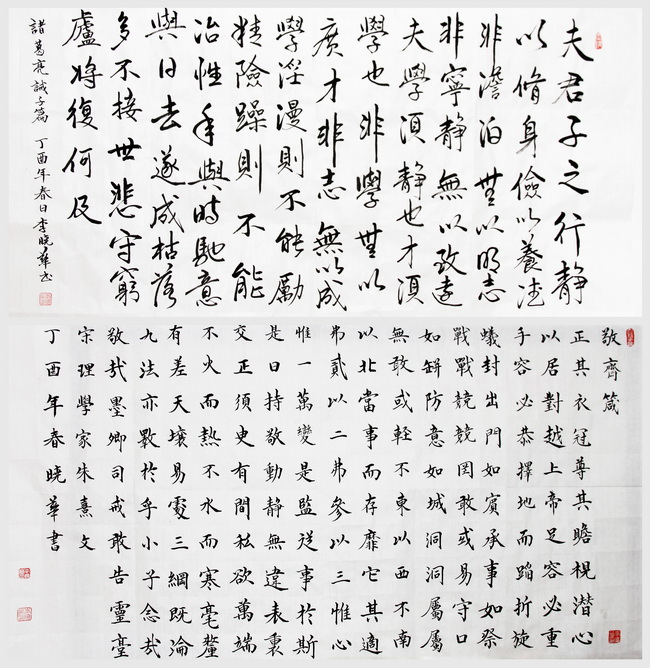 夫君子之行靜
以脩身儉以養德
非澹泊無以明志
非寧靜無以致遠
夫學須靜也才須
學也非學無以
廣才非志無以成
學淫漫則不能勵
精險躁則不能
治性年與時馳意
與日去遂成枯落
多不接世悲守窮
廬將復何及
諸葛亮誡子篇 丁酉年春日李晓華书
敬齊箴
正其衣冠尊其瞻視潜心
以居對越上帝足容必重
手容必恭擇地而蹈折旋
蟻封出門如賓承事如祭
戰戰兢兢罔敢或易守口
如缾防意如城洞洞屬屬
無敢或輕不東以西不南
以北當事而存靡它其適
弗貳以二弗參以三惟心
惟一萬變是監從事於斯
是曰持敬動靜無違表裏
交正須臾有間私欲萬端
不火而熱不水而寒毫釐
有差天壤易處三綱既淪
九法亦斁於乎小子念哉
敬哉墨卿司戒敢告靈臺
宋理學家朱熹文
丁酉年春晓華書